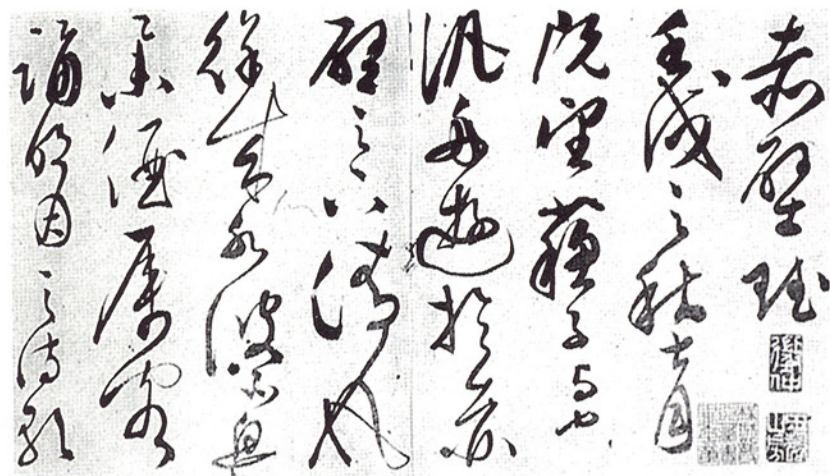 赤壁賦
壬戌之秋七月
既望蘇子与客
汎舟遊於赤
壁之下清風
徐來水波不興
舉酒屬客
誦明月之詩歌